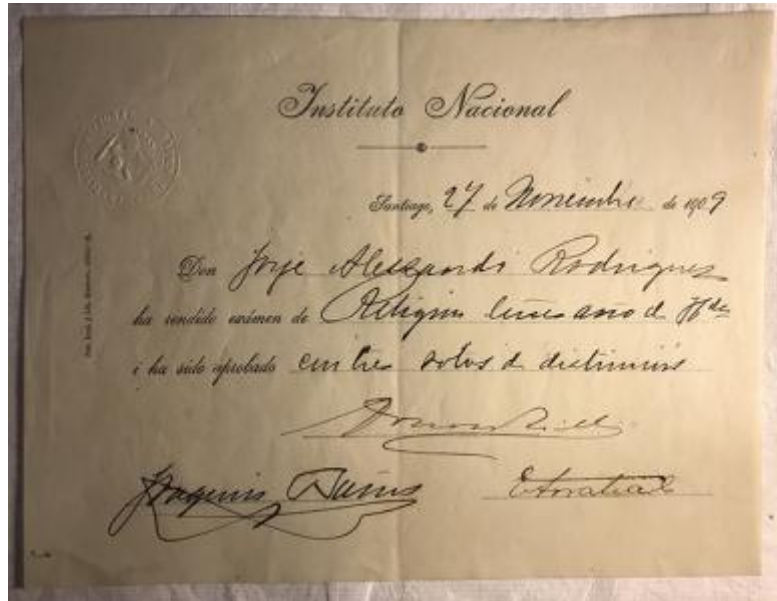 Instituto Nacional
Santiago, 27 de Noviembre de 1909
Don Jorje Alessandri Rodriguez
ha rendido exámen de Relijion año de
i ha sido aprobado con tres votos de distincion
Joaquin